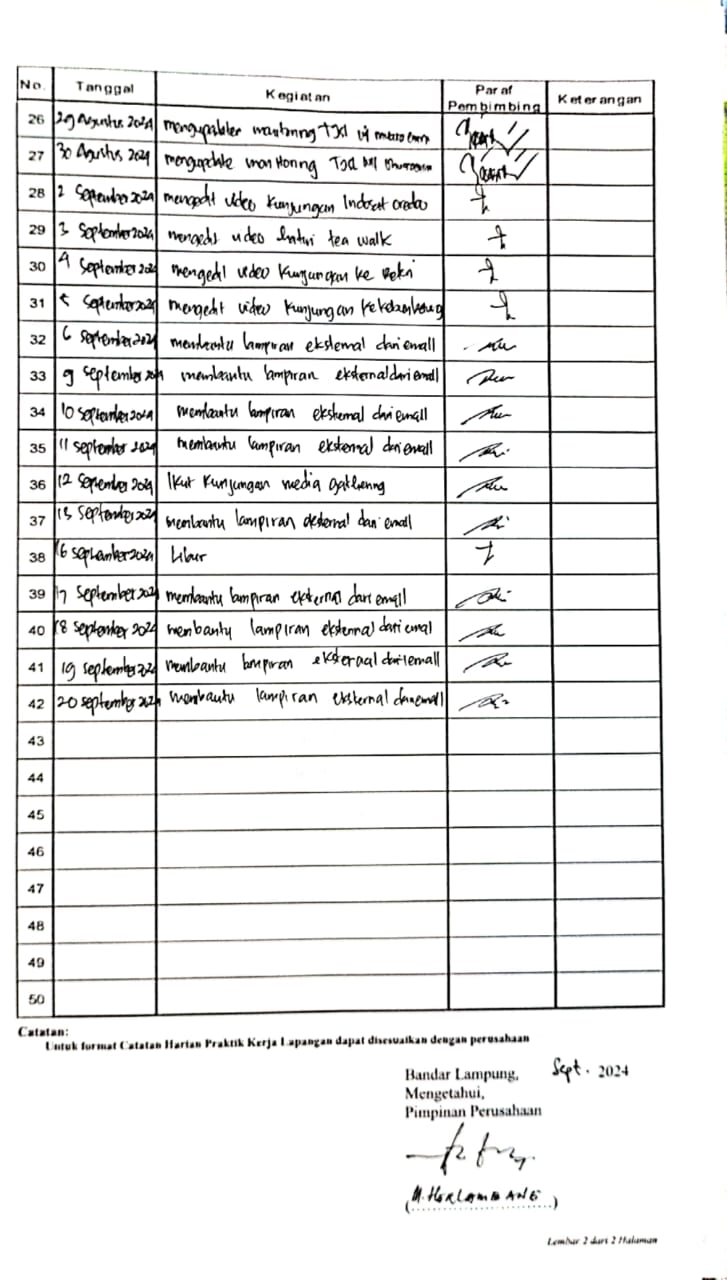 No. Tanggal Kegiatan Paraf Pembimbing Keterangan
26 29 Agustus 2024
27 30 Agustus 2024
28 2 September 2024 mengedit video Kunjungan Indosat
29 3 September 2024 mengedit video tea walk
30 4 September 2024 mengedit video Kunjungan ke
31 5 September 2024 mengedit video Kunjungan ke
32 6 September 2024 membantu lampiran eksternal dari email
33 9 September 2024 membantu lampiran eksternal dari email
34 10 september 2024 membantu lampiran eksternal dari email
35 11 september 2024 membantu lampiran eksternal dari email
36 12 September 2024 Ikut Kunjungan media gathering
37 13 September 2024 membantu lampiran eksternal dari email
38 16 september 2024 Libur
39 17 September 2024 membantu lampiran eksternal dari email
40 18 september 2024 membantu lampiran eksternal dari email
41 19 september 2024 membantu lampiran eksternal dari email
42 20 september 2024 membantu lampiran eksternal dari email
43
44
45
46
47
48
49
50
Catatan:
Untuk format Catatan Harian Praktik Kerja Lapangan dapat disesuaikan dengan perusahaan
Bandar Lampung, Sept. 2024
Mengetahui,
Pimpinan Perusahaan
(M. HERLAMBANG)
Lembar 2 dari 2 Halaman